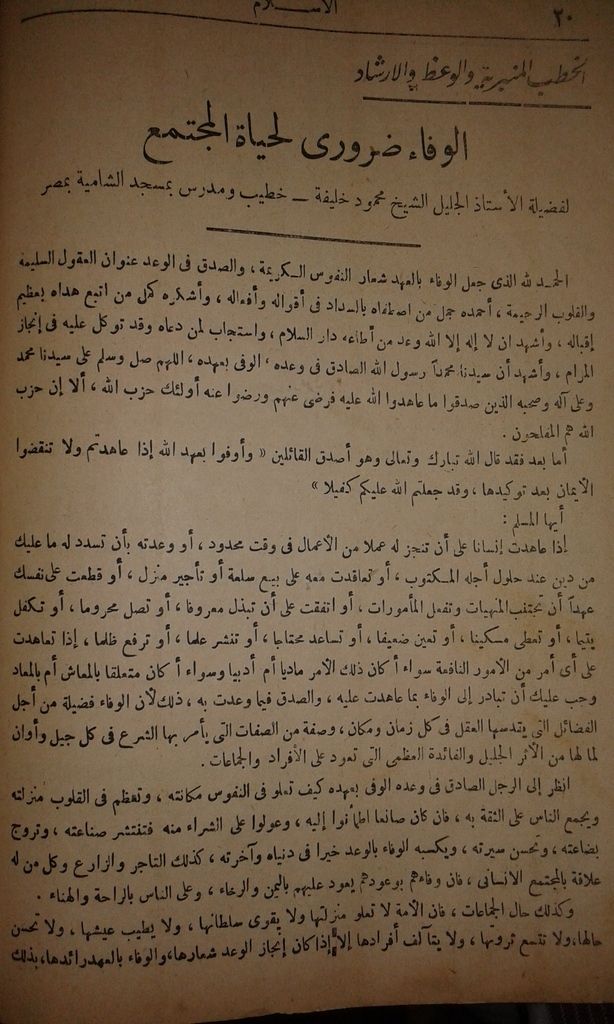 ٢٠
الاسلام
الخطب المنبرية والوعظ والارشاد
الوفاء ضرورى لحياة المجتمع
لفضيلة الأستاذ الجليل الشيخ محمود خليفة — خطيب ومدرس بمسجد الشامية بمصر
الحمد لله الذى جعل الوفاء بالعهد شعار النفوس الكريمة ، والصدق فى الوعد عنوان العقول السليمة
والقلوب الرحيمة ، أحمده حمل من اصطفاه بالسداد فى أقواله وأفعاله ، وأشكره كمل من اتبع هداه بعظيم
إقباله ، وأشهد ان لا إله إلا الله وعد من أطاعه دار السلام ، واستجاب لمن دعاه وقد توكل عليه فى إنجاز
المرام ، وأشهد أن سيدنا محمداً رسول الله الصادق فى وعده ، الوفى بعهده ، اللهم صل وسلم على سيدنا محمد
وعلى آله وصحبه الذين صدقوا ما عاهدوا الله عليه فرضى عنهم ورضوا عنه أولئك حزب الله ، ألا إن حزب
الله هم المفلحون .
أما بعد فقد قال الله تبارك وتعالى وهو أصدق القائلين « وأوفوا بعهد الله إذا عاهدتم ولا تنقضوا
الأيمان بعد توكيدها ، وقد جعلتم الله عليكم كفيلا »
أيها المسلم :
إذا عاهدت إنسانا على أن تنجز له عملا من الأعمال فى وقت محدود ، أو وعدته بأن تسدد له ما عليك
من دين عند حلول أجله المكتوب ، أو تعاقدت معه على بيع سلعة أو تأجير منزل ، أو قطعت على نفسك
عهداً أن تجتنب المنهيات وتفعل المأمورات ، أو اتفقت على أن تبذل معروفا ، أو تصل محروما ، أو تكفل
يتيما ، أو تعطى مسكينا ، أو تعين ضعيفا ، أو تساعد محتاجا ، أو تنشر علما ، أو ترفع ظلما ، إذا تعاهدت
على أى أمر من الأمور النافعة سواء أ كان ذلك الأمر ماديا أم أدبيا وسواء أ كان متعلقا بالمعاش أم بالمعاد
وجب عليك أن تبادر إلى الوفاء بما عاهدت عليه ، والصدق فيما وعدت به ، ذلك لأن الوفاء فضيلة من أجل
الفضائل التى يقدسها العقل فى كل زمان ومكان ، وصفة من الصفات التى يأمر بها الشرع فى كل جيل وأوان
لما لها من الأثر الجليل والفائدة العظمى التى تعود على الأفراد والجماعات .
انظر إلى الرجل الصادق فى وعده الوفى بعهده كيف تعلو فى النفوس مكانته ، وتعظم فى القلوب منزلته
ويجمع الناس على الثقة به ، فان كان صانعا اطمأنوا إليه ، وعولوا على الشراء منه فتنتشر صناعته ، وتروج
بضاعته ، وتحسن سيرته ، ويكسبه الوفاء بالوعد خيرا فى دنياه وآخرته ، كذلك التاجر والزارع وكل من له
علاقة بالمجتمع الانسانى ، فان وفاءهم بوعودهم يعود عليهم باليمن والرخاء ، وعلى الناس بالراحة والهناء .
وكذلك حال الجماعات ، فان الأمة لا تعلو منزلتها ولا يقوى سلطانها ، ولا يطيب عيشها ، ولا تحسن
حالها ، ولا تتسع ثروتها ، ولا يتآلف أفرادها إلا إذا كان إنجاز الوعد شعارها ، والوفاء بالعهد رائدها ، بذلك